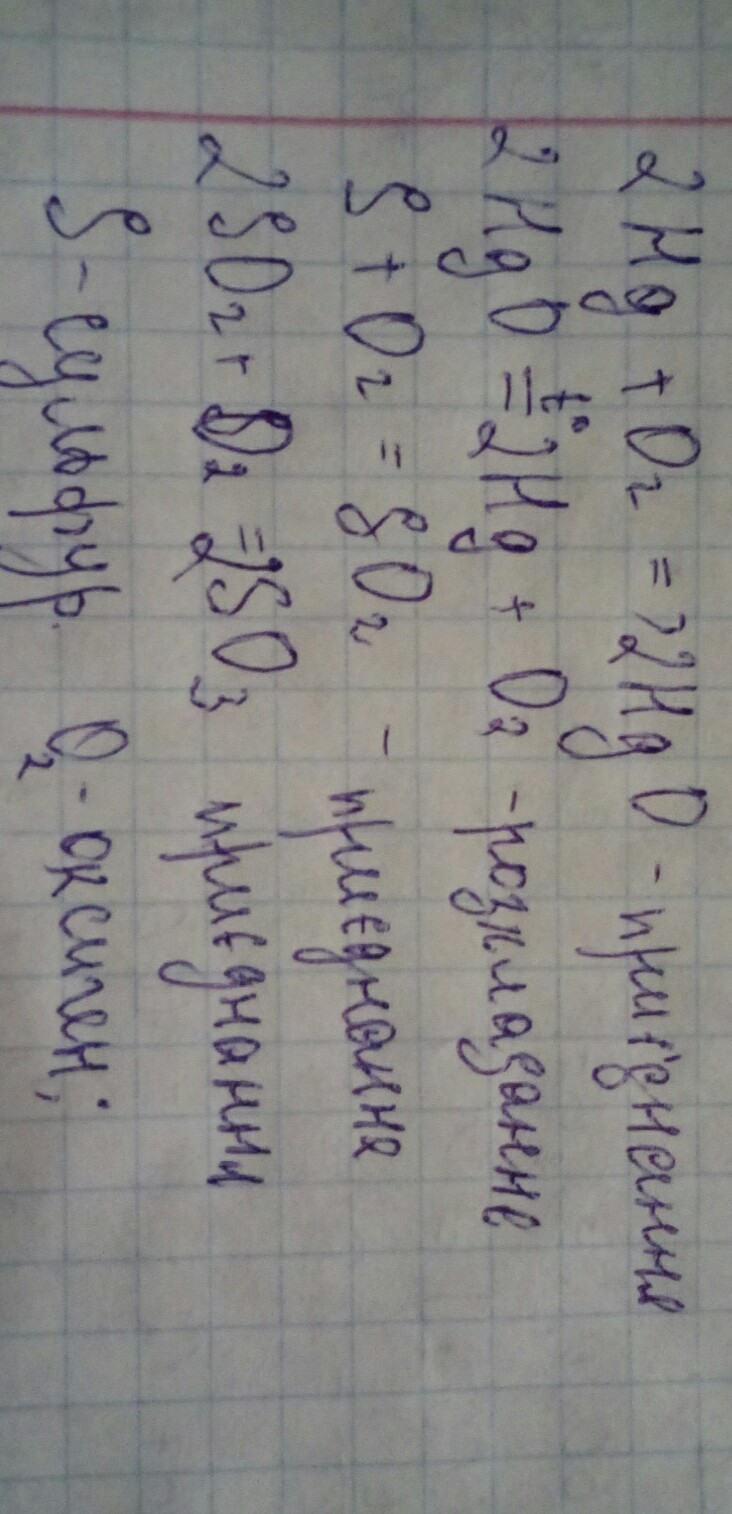 2Hg + O₂ = 2HgO - приєднання
2HgO =t° 2Hg + O₂ - розкладання
S + O₂ = SO₂ - приєднання
2SO₂ + O₂ = 2SO₃ приєднання
S - сульфур. O₂ - оксиген;